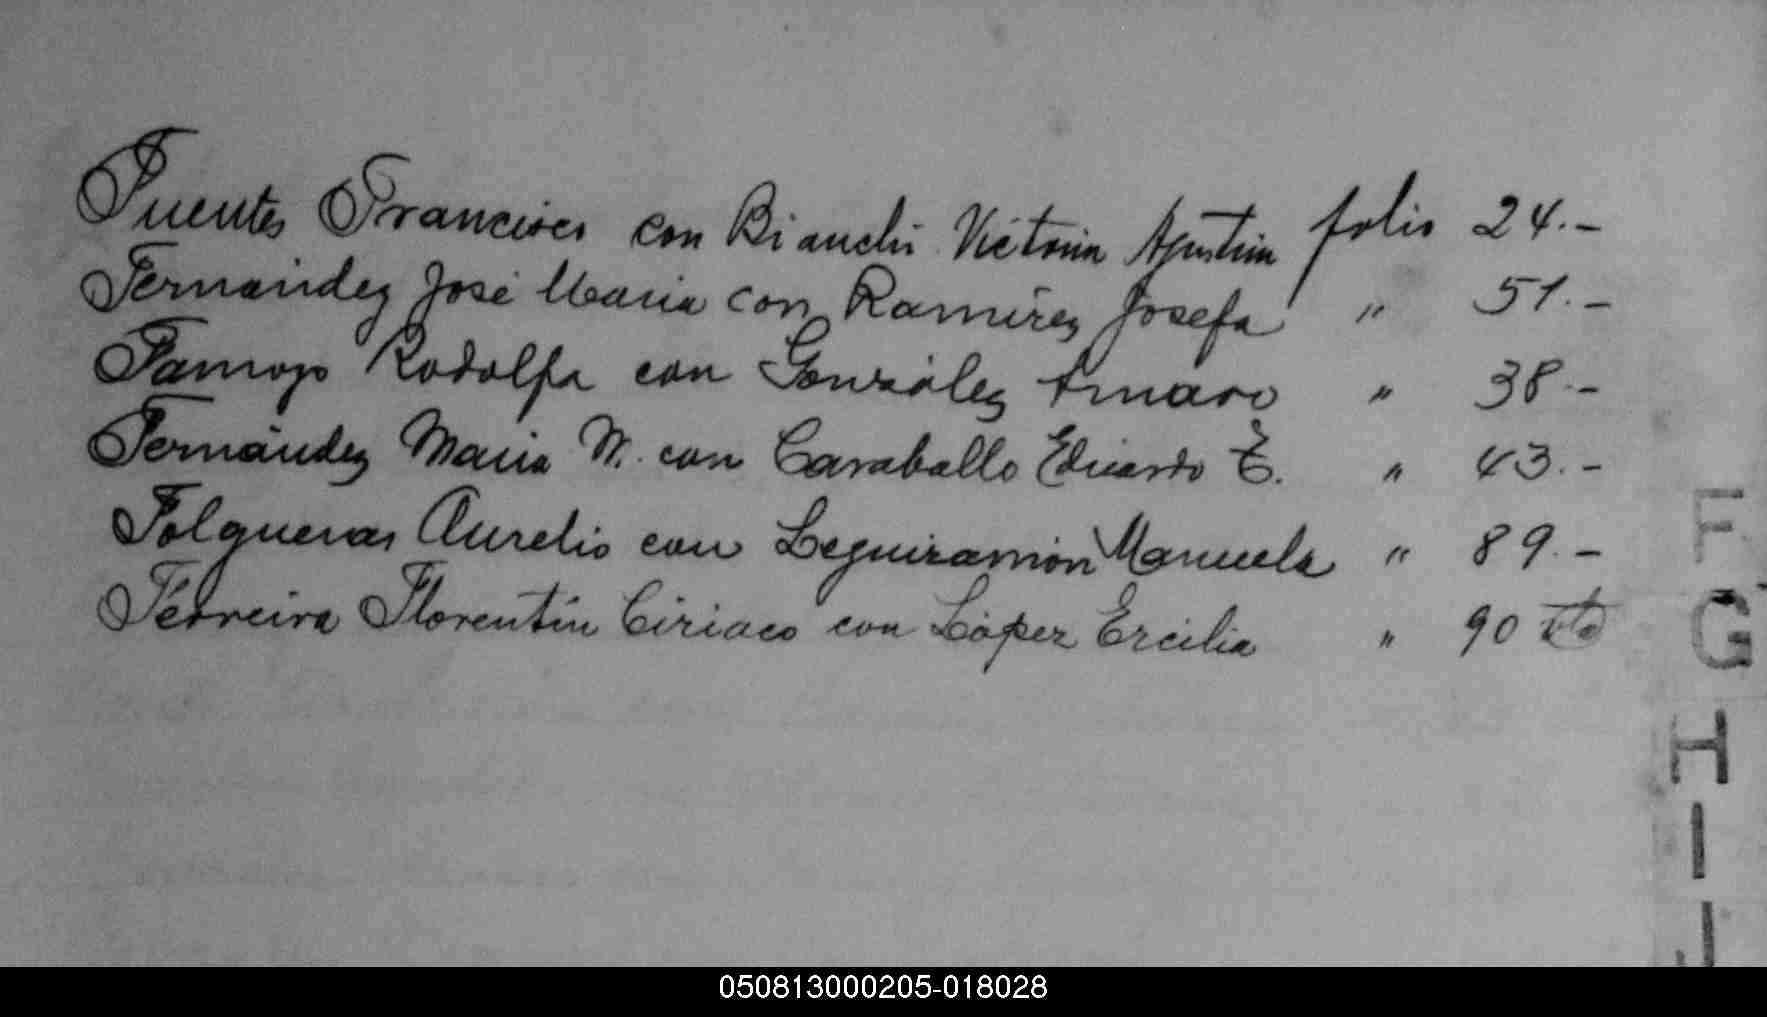 Fuentes Francisco con Bianchi Victoria Agustina folio 24.-
Fernández José Maria con Ramírez Josefa " 51.-
Tamayo Rodolfa con González Amaro " 38.-
Fernández Maria N. con Caraballo Eduardo E. " 43.-
Folgueras Aurelio con Leguizamón Manuela " 89.-
Ferreira Florentín Ciriaco con López Ercilia " 90 vto
F
G
H
I
J
050813000205-018028